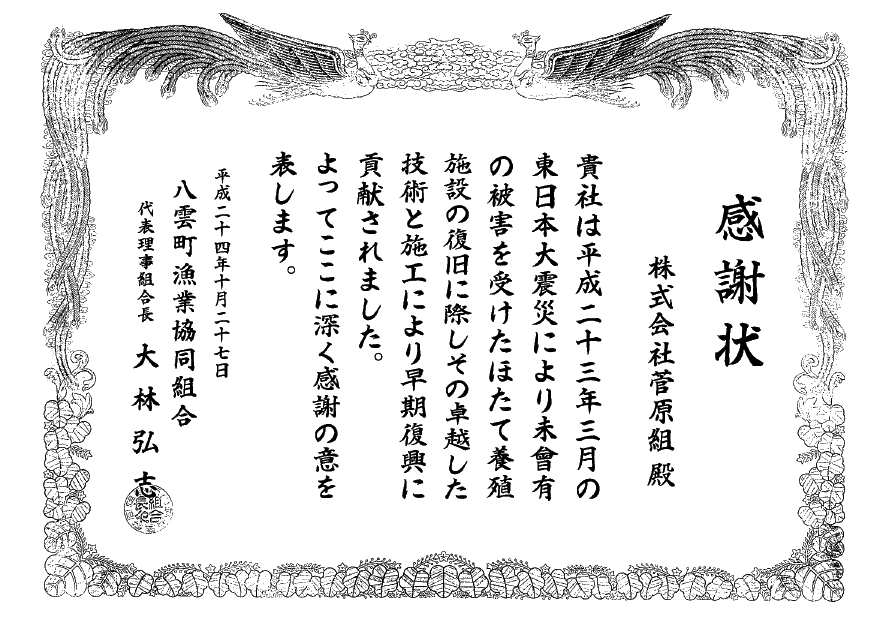 感謝状
株式会社菅原組 殿
貴社は平成二十三年三月の
東日本大震災により未曾有
の被害を受けたほたて養殖
施設の復旧に際しその卓越した
技術と施工により早期復興に
貢献されました。
よってここに深く感謝の意を
表します。
平成二十四年十月二十七日
八雲町漁業協同組合
代表理事組合長 大林弘志